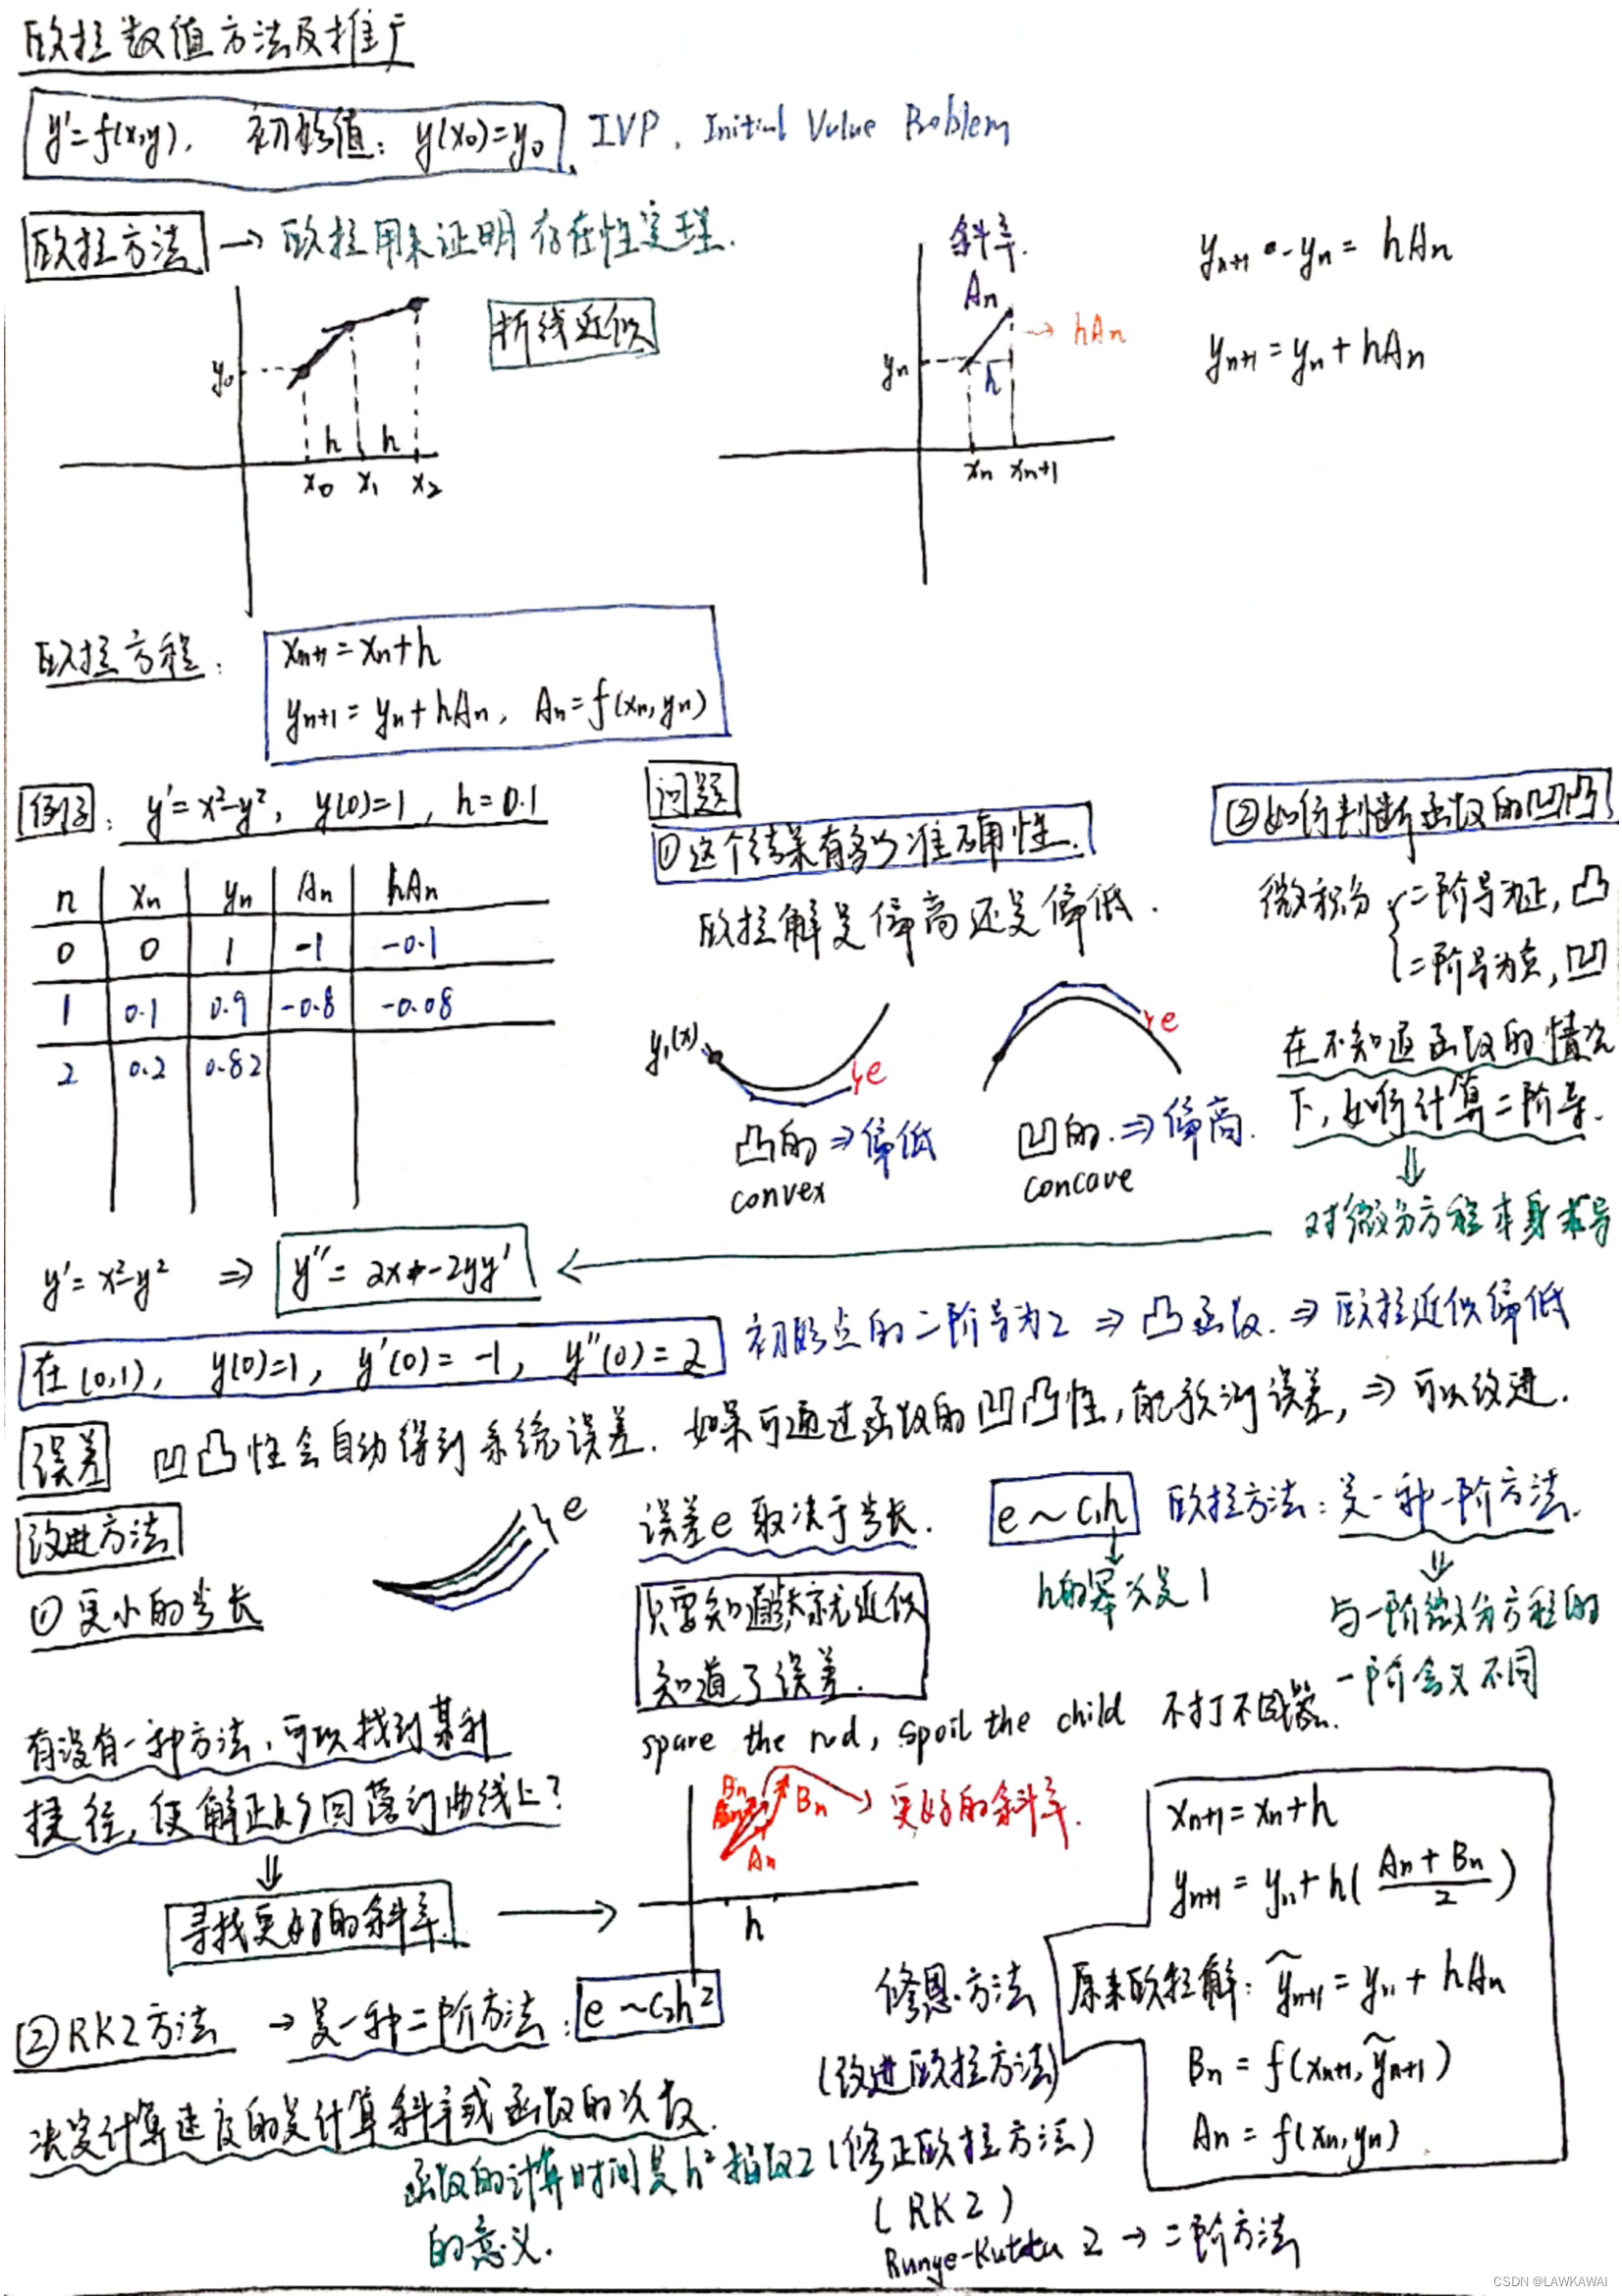 欧拉数值方法及推广
y'=f(x,y), 初始值: y(x₀)=y₀. IVP. Initial Value Problem
欧拉方法 → 欧拉用来证明存在性定理.
折线近似
y₀
h h
x₀ x₁ x₂
斜率.
An
→ hAn
yn
h
xn xn+1
yn+1 - yn = hAn
yn+1 = yn + hAn
欧拉方程:
xn+1 = xn + h
yn+1 = yn + hAn, An = f(xn, yn)
例子: y'=x²-y², y(0)=1, h=0.1
n xn yn An hAn
0 0 1 -1 -0.1
1 0.1 0.9 -0.8 -0.08
2 0.2 0.82
问题
①这个结果有多少准确性.
欧拉解是偏高还是偏低.
y₁(x)
e
凸的 ⇒ 偏低
convex
e
凹的. ⇒ 偏高.
concave
②如何判断函数的凹凸
微积分 { 二阶导为正, 凸
二阶导为负, 凹
在不知道函数的情况
下, 如何计算二阶导.
⇓
对微分方程本身求导
y'=x²-y² ⇒ y''= 2x-2yy' ←
在(0,1), y(0)=1, y'(0)= -1, y''(0)=2 初始点的二阶导为2 ⇒ 凸函数. ⇒ 欧拉近似偏低
误差 凹凸性会自动得到系统误差. 如果可通过函数的凹凸性, 能预测误差, ⇒ 可以改进.
改进方法
①更小的步长
e
误差e取决于步长.
只需知道步长就近似
知道了误差.
e ~ C₁h
↓
h的幂次是1
欧拉方法: 是一种一阶方法.
⇓
与一阶微分方程的
一阶含义不同
spare the rod, spoil the child 不打不成器.
有没有一种方法, 可以找到某种
捷径, 使解正好回落到曲线上?
⇓
寻找更好的斜率. →
Bn
Bn
An
→ 更好的斜率.
h
②RK2方法 → 是一种二阶方法: e ~ C₂h²
决定计算速度的是计算斜率或函数的次数.
函数的计算时间是h²指数2
的意义.
修恩方法
(改进欧拉方法)
(修正欧拉方法)
(RK2)
Runge-Kutta 2 → 二阶方法
xn+1 = xn + h
yn+1 = yn + h( (An + Bn)/2 )
原来欧拉解: ỹn+1 = yn + hAn
Bn = f(xn+1, ỹn+1)
An = f(xn, yn)
CSDN @LAWKAWAI